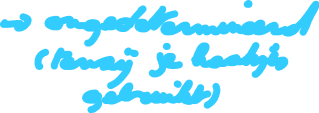 → ongedetermineerd
(tenzij je haakjes
gebruikt)